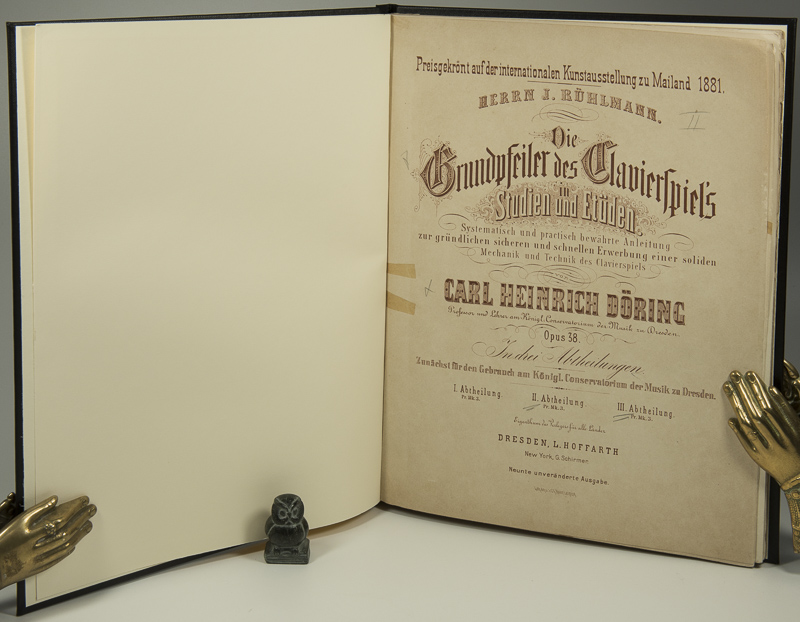 Preisgekrönt auf der internationalen Kunstausstellung zu Mailand 1881.
HERRN J. RÜHLMANN.
II
Die
Grundpfeiler des Clavierspiel's
in
Studien und Etüden.
Systematisch und practisch bewährte Anleitung
zur gründlichen sicheren und schnellen Erwerbung einer soliden
Mechanik und Technik des Clavierspiels
CARL HEINRICH DÖRING
Professor und Lehrer am Königl. Conservatorium der Musik zu Dresden.
Opus 38.
In drei Abtheilungen.
Zunächst für den Gebrauch am Königl. Conservatorium der Musik zu Dresden.
I. Abtheilung.
Pr. Mk. 3.
II. Abtheilung
Pr. Mk. 3.
III. Abtheilung.
Pr. Mk. 3.
Eigenthum des Verlegers für alle Länder.
DRESDEN, L. HOFFARTH
New York, G. Schirmer.
Neunte unveränderte Ausgabe.